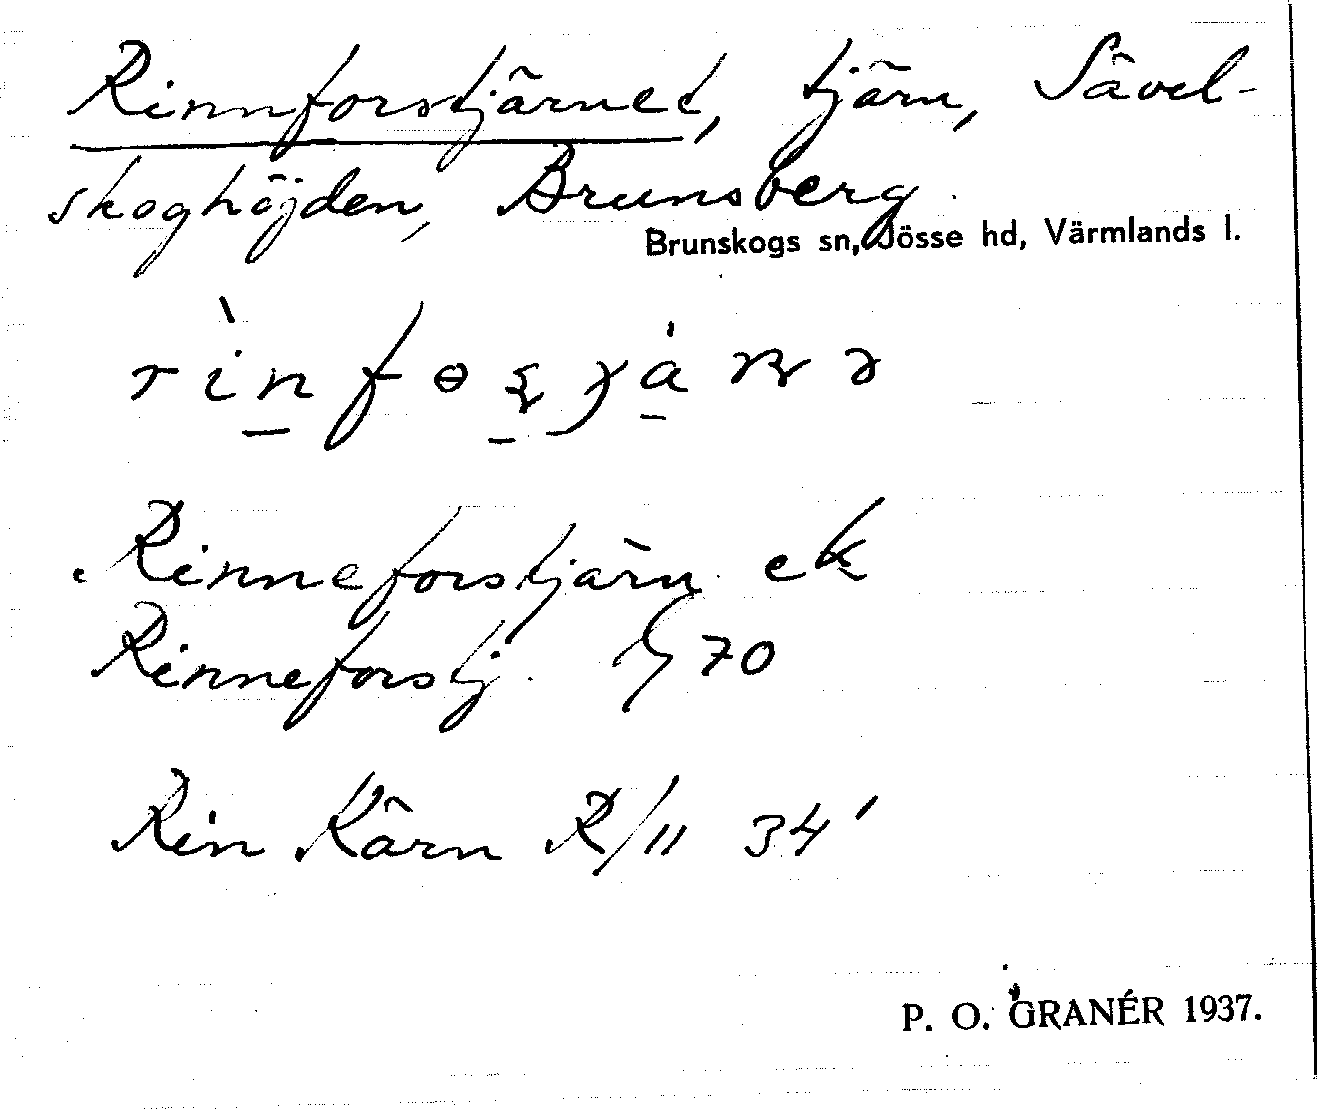 Rinnforstjärnet, tjärn, Sävel-
skoghöjden, Brunsberg.
Brunskogs sn, Jösse hd, Värmlands l.
Rinneforstjärn ek
Rinneforstj. 70
Rin Kärn R/II 34'
P. O. GRANÉR 1937.